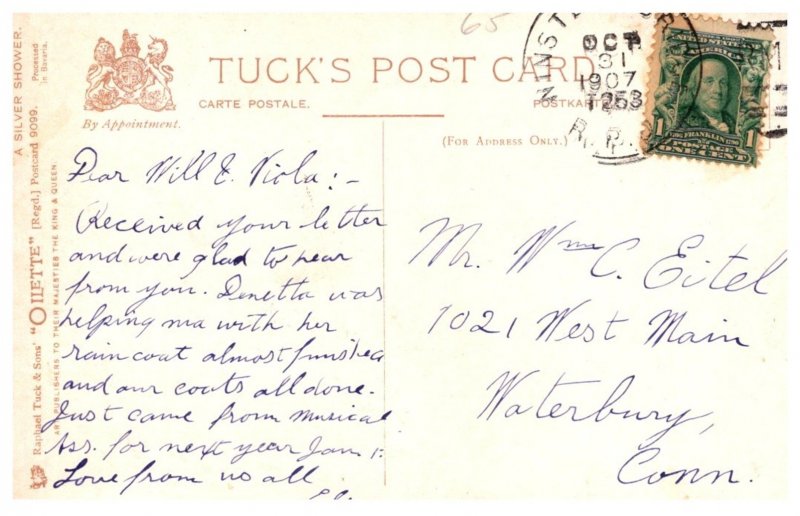 65
TUCK'S POST CARD
CARTE POSTALE.
POSTKARTE
By Appointment.
(FOR ADDRESS ONLY.)
OCT
31
1907
A SILVER SHOWER.
Processed
in Bavaria.
Raphael Tuck & Sons' "OILETTE" [Regd.] Postcard 9099.
ART PUBLISHERS TO THEIR MAJESTIES THE KING & QUEEN.
UNITED STATES OF AMERICA
FRANKLIN
1 1
POSTAGE
ONE CENT
Dear Will & Viola:-
Received your letter
and were glad to hear
from you. was
helping ma with her
rain coat almost finished
and our coats all done.
Just came from musical
Ass. for next year Jan 1.
Love from us all
Mr. Wm C. Eitel
1021 West Main
Waterbury,
Conn.